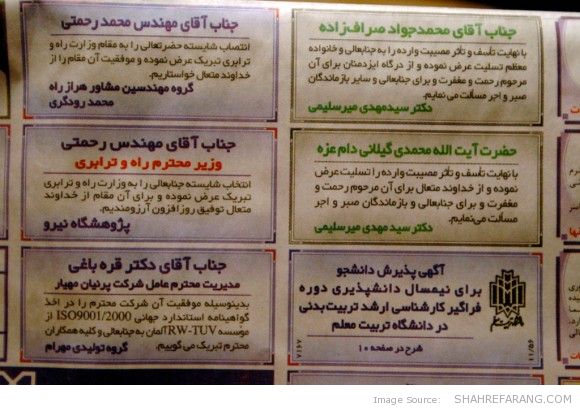 جناب آقای محمدجواد صراف‌زاده
با نهایت تأسف و تأثر مصیبت وارده را به جنابعالی و خانواده
معظم تسلیت عرض نموده و از درگاه ایزدمنان برای آن
مرحوم رحمت و مغفرت و برای جنابعالی و سایر بازماندگان
صبر و اجر مسألت می نمایم.
دکتر سیدمهدی میرسلیمی
جناب آقای مهندس محمد رحمتی
انتصاب شایسته حضرتعالی را به مقام وزارت راه و
ترابری تبریک عرض نموده و موفقیت آن مقام را از
خداوند متعال خواستاریم.
گروه مهندسین مشاور هراز راه
محمد رودگری
حضرت آیت الله محمدی گیلانی دام عزه
با نهایت تأسف و تأثر مصیبت وارده را تسلیت عرض
نموده و از خداوند متعال برای آن مرحوم رحمت و
مغفرت و برای جنابعالی و بازماندگان صبر و اجر
مسألت می‌نمایم.
دکتر سیدمهدی میرسلیمی
جناب آقای مهندس رحمتی
وزیر محترم راه و ترابری
انتخاب شایسته جنابعالی را به وزارت راه و ترابری
تبریک عرض نموده و برای آن مقام از خداوند
متعال توفیق روزافزون آرزومندیم.
پژوهشگاه نیرو
آگهی پذیرش دانشجو
برای نیمسال دانشپذیری دوره
فراگیر کارشناسی ارشد تربیت بدنی
در دانشگاه تربیت معلم
شرح در صفحه ۱۰
۷۱۶۷
۱۱/۵۶
جناب آقای دکتر قره باغی
مدیریت محترم عامل شرکت پرنیان مهیار
بدینوسیله موفقیت آن شرکت محترم را در اخذ
گواهینامه استاندارد جهانی ISO9001/2000 از
موسسه RW-TUV آلمان به جنابعالی و کلیه همکاران
محترم تبریک می گوییم.
گروه تولیدی مهرام
Image Source: SHAHREFARANG.COM